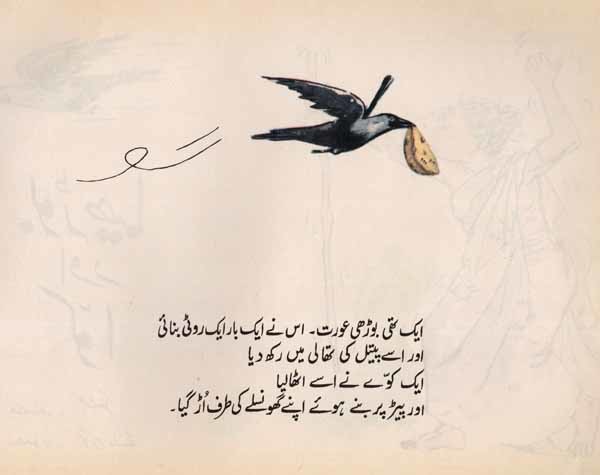 ایک تھی بوڑھی عورت۔ اس نے ایک بار ایک روٹی بنائی
اور اسے پیتل کی تھالی میں رکھ دیا
ایک کوّے نے اسے اٹھالیا
اور پیڑ پر بنے ہوئے اپنے گھونسلے کی طرف اُڑ گیا۔